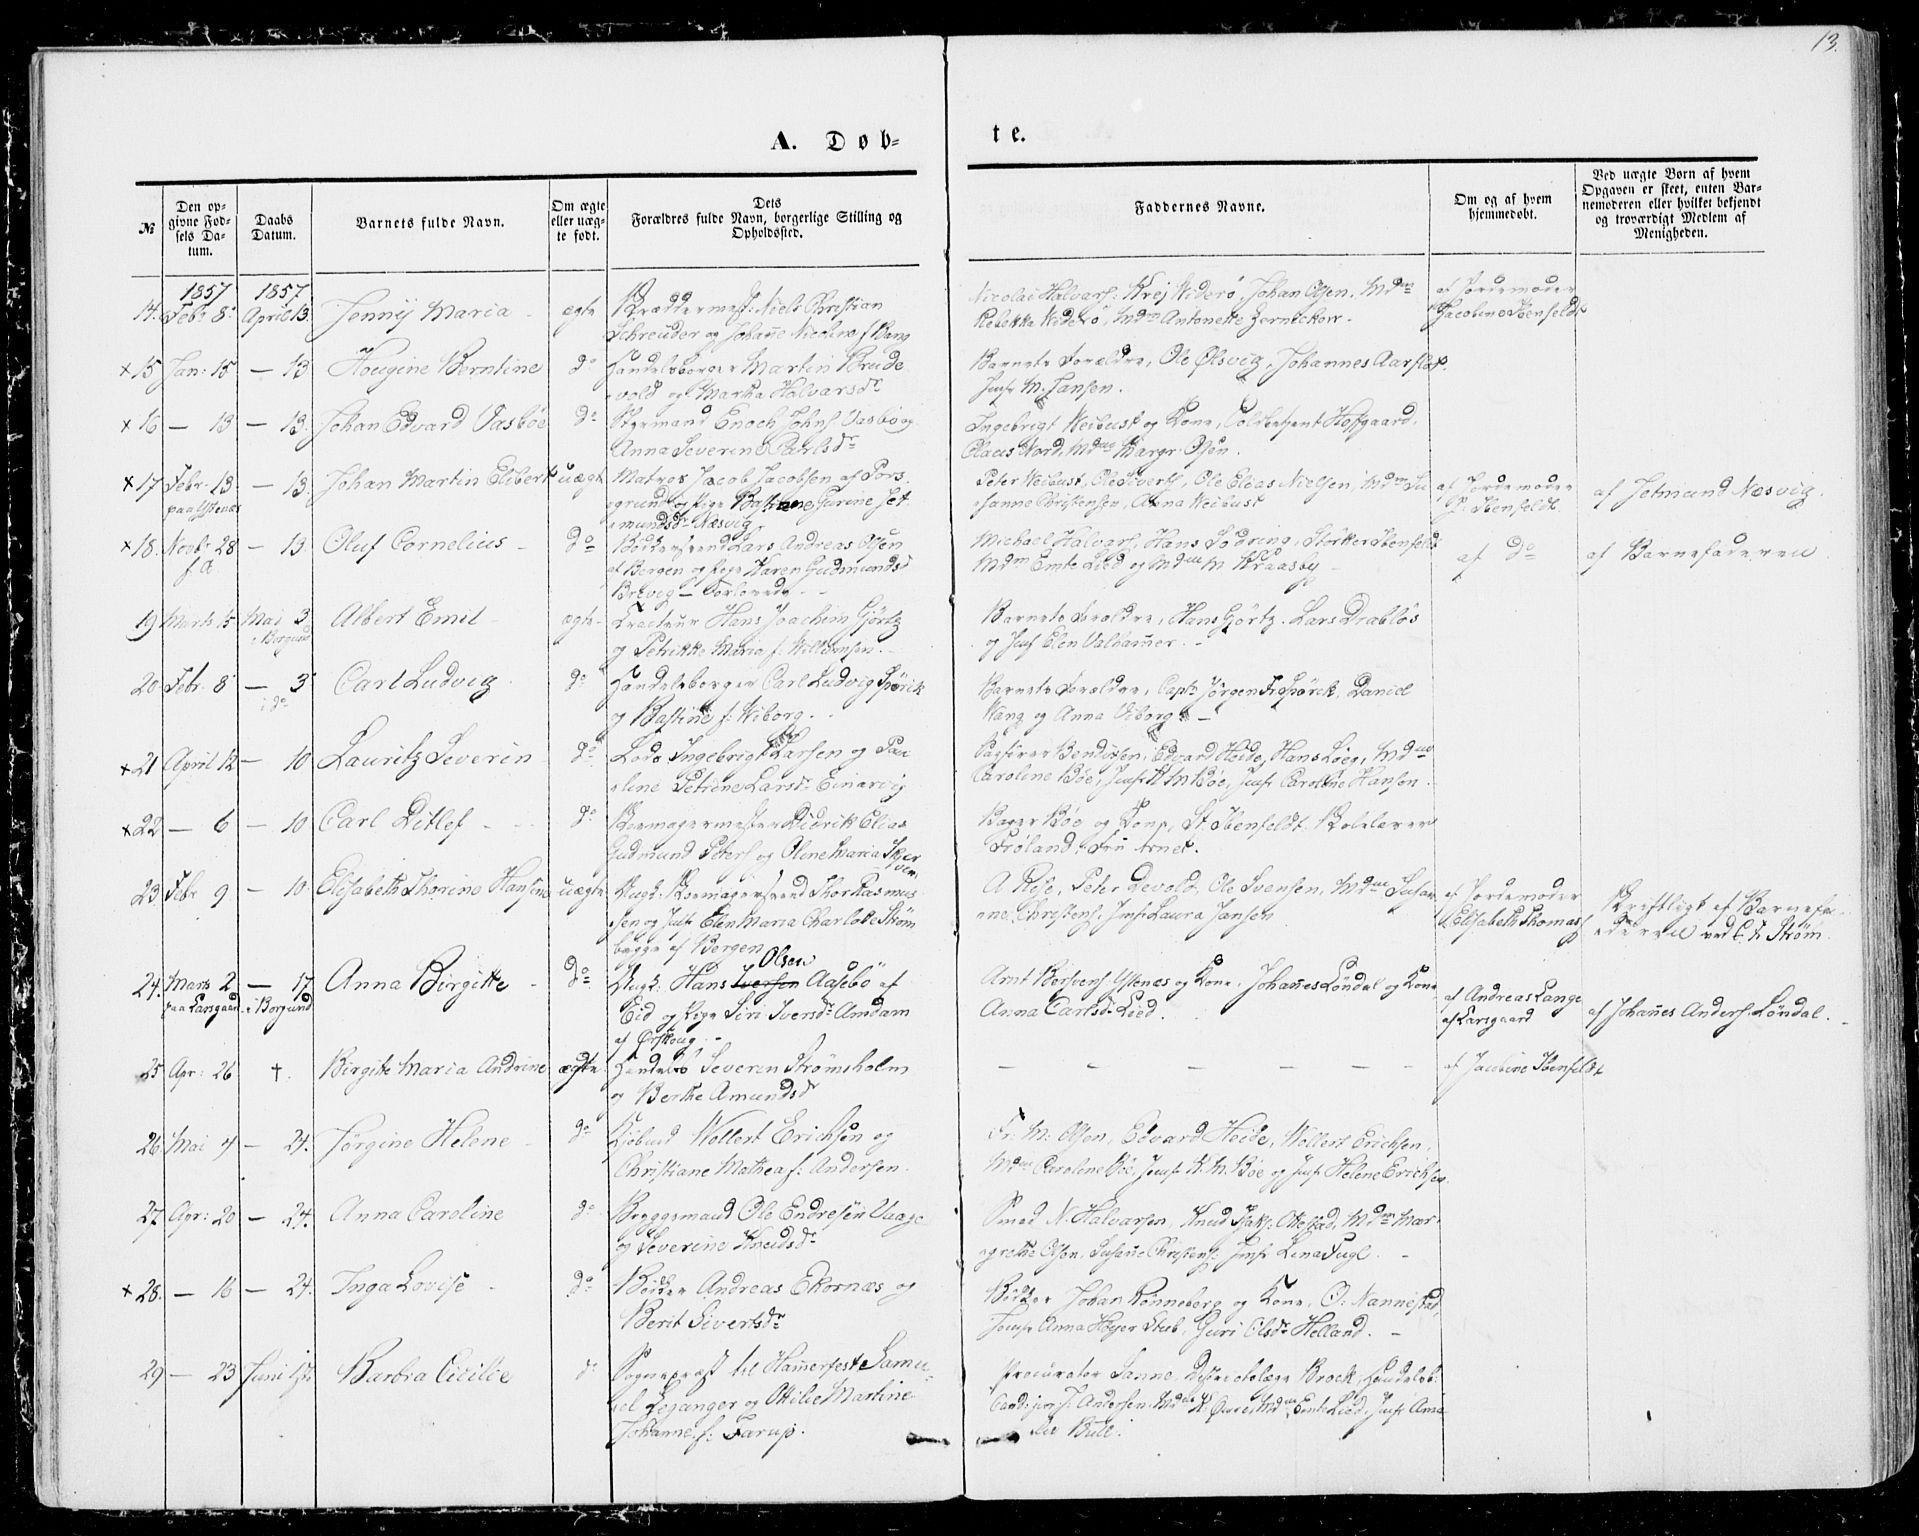 13.
A. Døb-
te.
№
Den op-
givne Fød-
sels Da-
tum.
Daabs
Datum.
Barnets fulde Navn.
Om ægte
eller uæg-
te født.
Dets
Forældres fulde Navn, borgerlige Stilling og
Opholdssted.
Faddernes Navne.
Om og af hvem
hjemmedøbt.
Ved uægte Børn af hvem
Opgaven er skeet, enten Bar-
nemoderen eller hvilket bekjendt
og troværdigt Medlem af
Menigheden.
1857 1857
14. Febr 8. April 13. Jenny Maria ægte
Niels Christian
Schreuder og Johanne Nicoline f. Bang
Nicolai Halvars: Krej Widerø, Johan Olsen, Mdm
Rebekka Widerø, Mdm Antonette
af Jordemoder
Jacobine Ibenfeldt
×15 Jan: 15 — 13 Hougine Berntine do
Handelsborger Martin Brude
vold og Martha Halvarsdr
Barnets Forældre, Ole Olsvig, Johannes Aarflot,
Jmfr M. Jansen.
×16 — 13 — 13. Johan Edvard Vasbøe do
Styrmand Enoch Johns Vasbø og
Anna Severine Carlsdr
Ingebrigt Weibust og Kone, Toldbetjent Hoffgaard,
Claus Nord, Mdme Margr. Olsen.
×17 Febr. 13 — 13. Johan Martin Elibert uægte
paa Ystenæs
Matros Jacob Jacobsen af Pors
grund og Pige Bastiane Gurine Jet
mundsdr Næsvig
Peter Weibust, Ole Siverts, Ole Elias Nielsen, Mdm Su
sanne Christensen, Anna Weibust
af Jordemoder
J. Ibenfeldt.
af Jetmund Næsvig.
×18. Novbr 28 — 13. Oluf Cornelius do
f. A.
Bødkersvend Lars Andreas Olsen
af Bergen og Pige Karen Gudmundsd
Brevig — Forlovede
Michael Halvars, Hans Lødring, Størker Ibenfeldt
Mdm Emte Lied og Mdme M Kraasby
af do
af Barnefaderen.
19 Marts 15 Mai 3 Albert Emil ægte
i Borgund
Hans Joachim Gjørtz
og Petrikke Maria f. Willumsen.
Barnets Forældre, Hans Gjörtz. Lars Drabløs
og Jmf Elen Valhammer.
20 Febr. 8 — 3 Carl Ludvig do
i do
Handelsborger Carl Ludvig Spörck
og Bastine f. Wiborg.
Barnets Forældre, Capt. Jörgen Fr Spörck, Daniel
Wang og Anna Viborg. —
×21 April 12 — 10 Lauritz Severin do
Lods Ingebrigt Larsen og Pau
line Petrine Larsd. Einarvig
Bendixen, Edvard Heide, Hans Løeg, Mdme
Caroline Bøe, Jmfr. A M Bøe, Jmfr Caroline Hansen.
×22 — 6 — 10 Carl Ditlef do
Skomagermester Didrik Elias
Gudmund Peters og Oline Maria Skjer
ven.
Bager Bøe og Kone, St. Ibenfeldt, Skolelærer
Frøland, Fru Arnet.
23 Febr 9 — 10 Elisabeth Thorine Hansine uægte
Ungk: Skomagersvend Thor Rasmus
sen og Jmfr Elen Maria Charlotte Strøm
begge af Bergen
A Rise, Peter Devold, Ole Svensen, Mdme Susan
ne Christens, Jmf: Laura Jansen
af Jordemoder
Elisabeth Thomas
Skriftligt af Barnefa
deren ved C. Fr Strøm.
24. Marts 2 — 17 Anna Birgitte do
paa Larsgaard i Borgund
Olsen
Ungk: Hans Iversen Aasebø af
Eid og Pige Siri Iversdr Amdam
af Ørskoug.
Amt Børsens Ystenæs og Kone, Johannes Løndal og Kone
Anna Carlsd. Lied.
af Andreas Lange
af Larsgaard
af Johannes Anders. Løndal.
25 Apr: 26 †. Birgitte Maria Andrine ægte
Handelsb Severin Strømsholm
og Berthe Amundsd
— — — — —
af Jacobine Ibenfeldt
26. Mai 4 — 24. Jørgine Helene do
Kjøbmd Wollert Erichsen og
Christiane Mathea f: Andersen
Fr: M. Olsen, Edvard Heide, Wollert Erichsen,
Mdme Caroline Bøe, Jmfr. A. M. Bøe og Jmfr Helene Erichsen
27. Apr: 20 — 24. Anna Caroline do
Bryggemand Ole Endresen Vaage
og Severine Knudsdr
Smed N. Halvarsen, Knud Isaks: Ottestad, Mdm Mar-
grethe Olsen, Susanne Christens: Jmfr Lina Fugl. —
×28. — 16 — 24. Inga Lovise do
Bødker Andreas Ekornæs og
Berit Sivertsdr
Bødker Johan Rønneberg og Kone, O. Nannestad,
Jomfr Anna Høyer Stub, Guri Olsdr Helland. —
29 — 23 Juni 1ste Barbra Cicilie do
Sognepræst til Hammerfest Samu-
el Leganger og Ottilie Martine
Johanne f: Farup.
Procurator Sanne, Districtslæge Brock, Handelsb:
Cand. jur. J. Andersen, Mdme A. Owre, Mdme Emte Lied, Jmfr Ama
lie Bull.